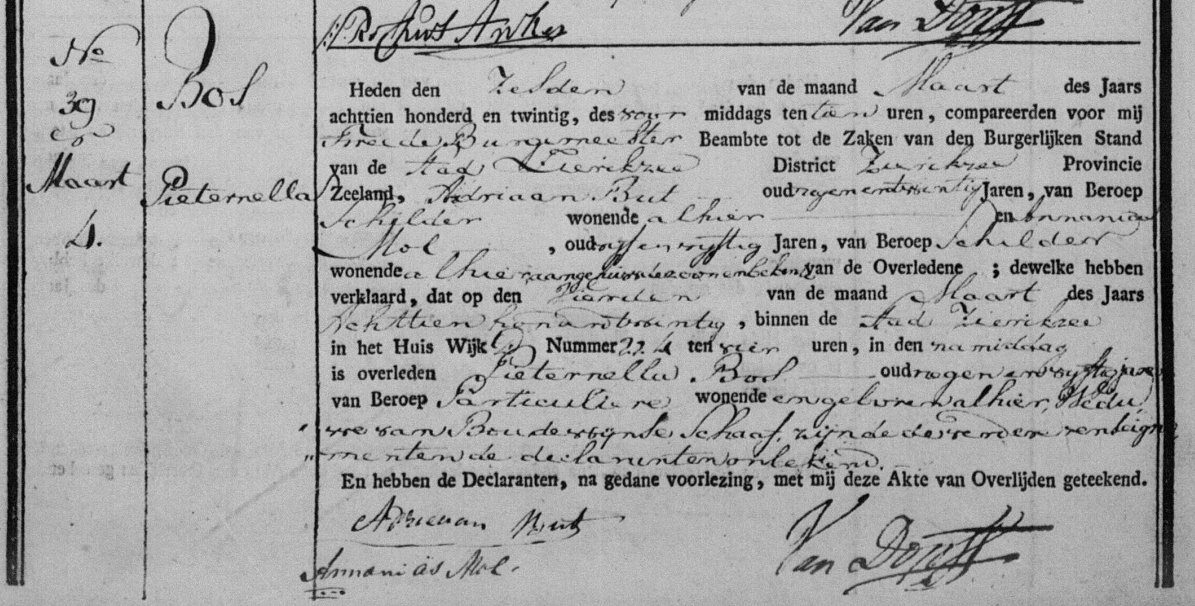 Van Dongt
No
39
Bos
Maart
Pieternella
4.
Heden den Zesden van de maand Maart des Jaars
achttien honderd en twintig, des voor middags ten tien uren, compareerden voor mij
Burgemeester Beambte tot de Zaken van den Burgerlijken Stand
van de stad Zierikzee District Zierikzee Provincie
Zeeland, Adriaan But oud negenentwintig Jaren, van Beroep
Schilder wonende alhier en Annanias
Mol, oud vijfenvijftig Jaren, van Beroep Schilder
wonende alhier aangehuwde en onbekend van de Overledene ; dewelke hebben
verklaard, dat op den Vierden van de maand Maart des Jaars
Achttien hondard twintig, binnen de stad Zierikzee
in het Huis Wijk Nummer 224 ten vier uren, in den namiddag
is overleden Pieternella Bos oud negenenvijftig jaren
van Beroep Particuliere wonende en geboren alhier, Wedu
we van Boudewijnse Schaaf, zijnde de verdere renseigne
menten de declaranten onbekend.
En hebben de Declaranten, na gedane voorlezing, met mij deze Akte van Overlijden geteekend.
Adriaan But
Annanias Mol.
Van Dongt